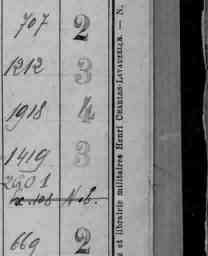 707 2
1212 3
1918 4
1419 3
2901
N.B.
669 2
s et librairie militaires Henri CHARLES-LAVAUZELLE. — N.